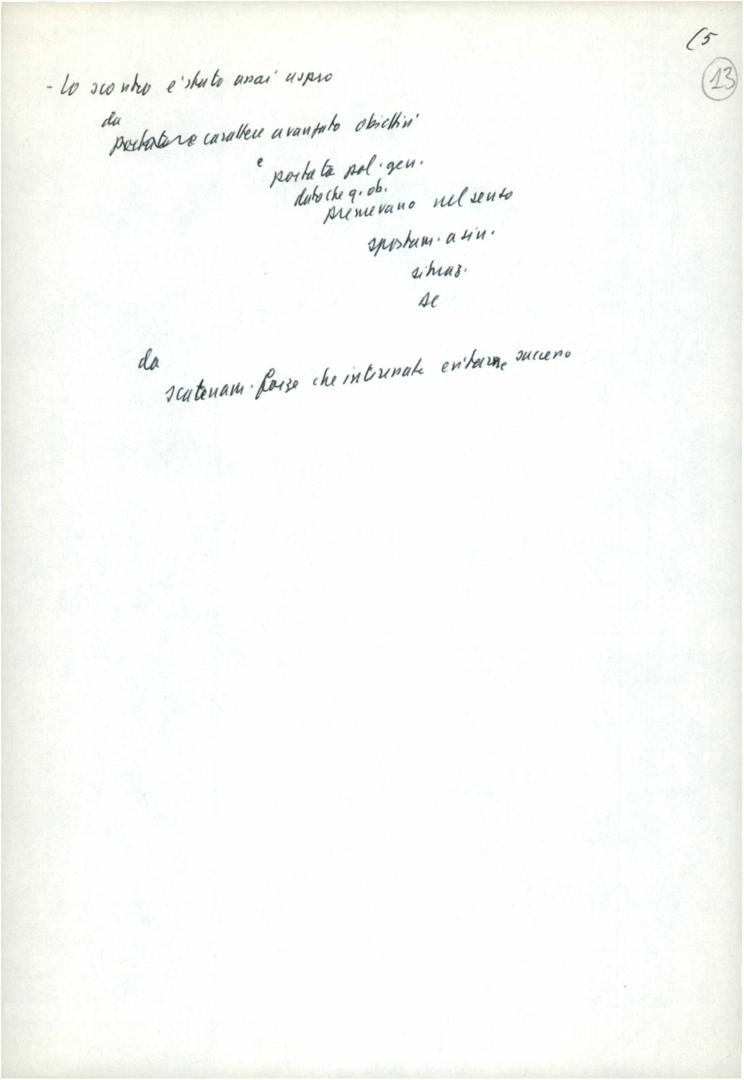 (5
13
- Lo scontro e' stato assai aspro
da
carattere avanzato obiettivi
e portata pol. gen.
dato che q. ob.
premevano nel senso
spostam. a sin.
situaz.
se
da
scatenam. forze che intendevate evitarne successo